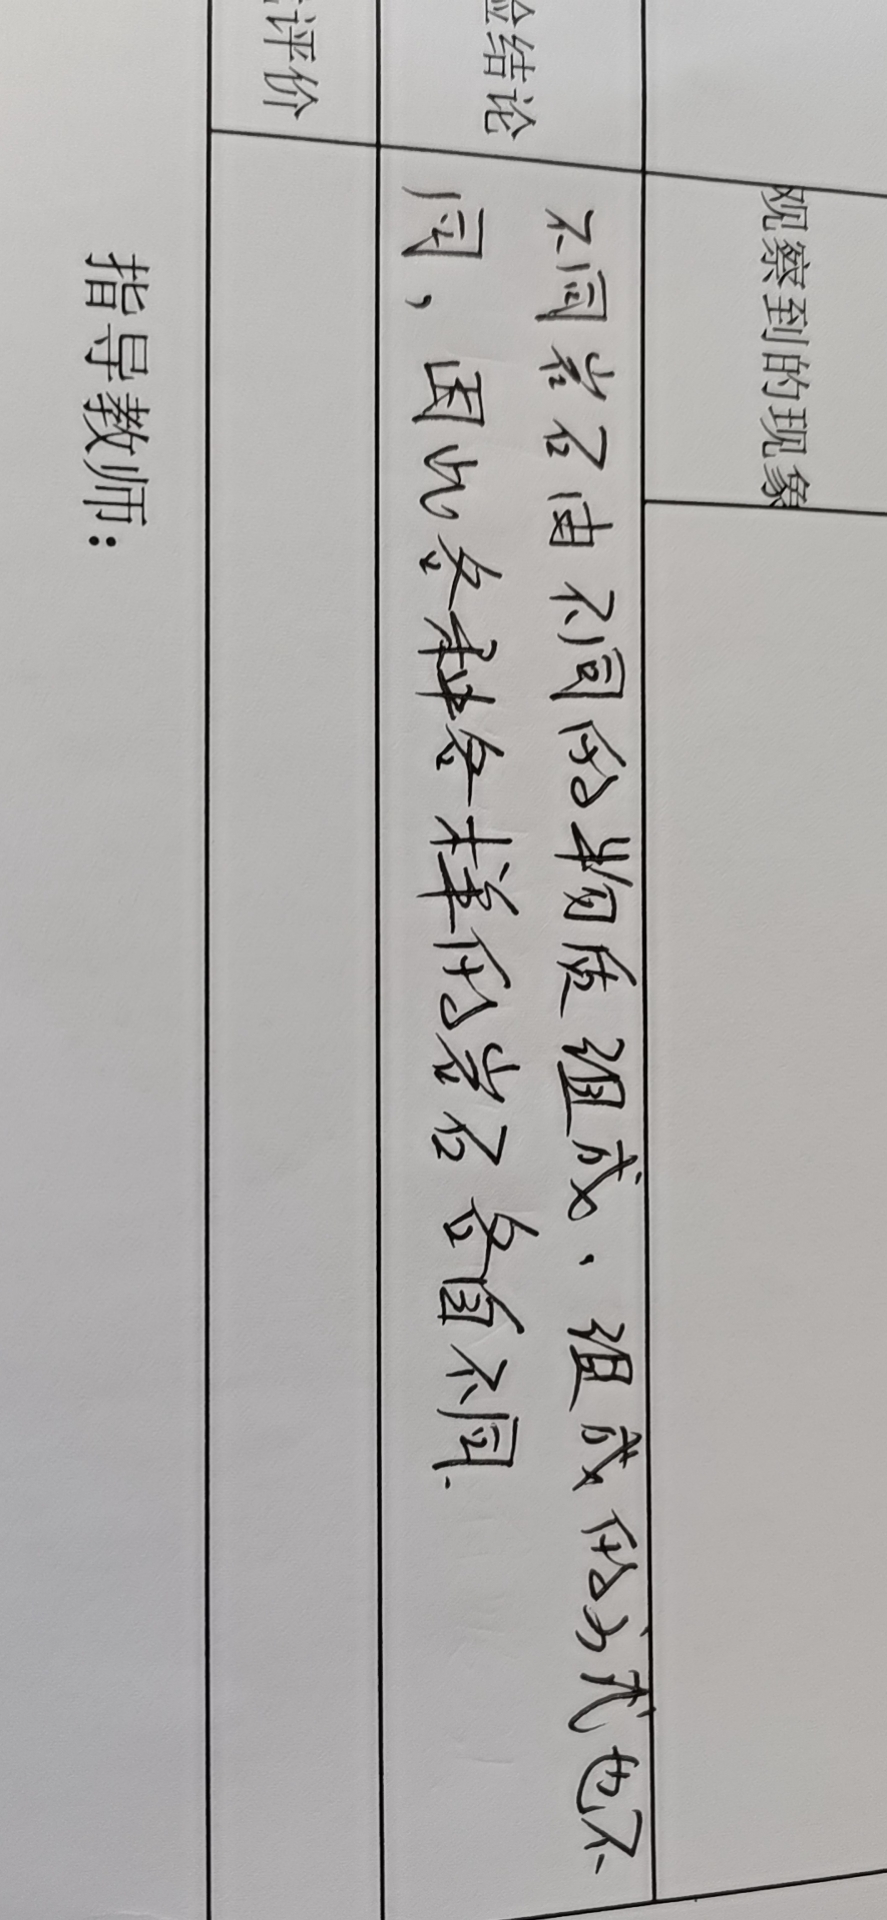 观察到的现象
验结论
不同岩石由不同的物质组成,组成的方式也不
同,因此各种各样的岩石各自不同.
评价
指导教师: